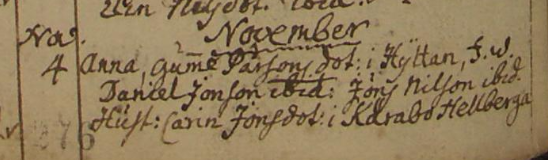 Nilsdot: ibid:
November
No:
4 Anna, Gumme Pärsons dot: i Hÿttan, F. w.
Daniel Jonson ibid: Jöns Nilson ibid.
Hust: Carin Jönsdot: i Kårabo Hellberga